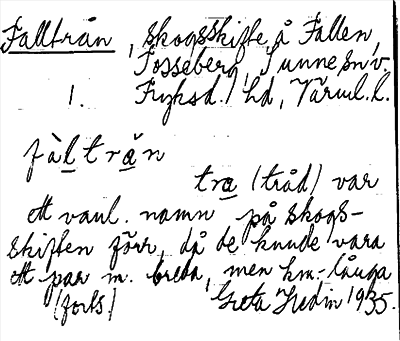 Falltrån, skogsskifte å Fallen,
Fosseberg, Sunne sn v.
1. Fryksd. hd, Värml. l.
fàltrån
tra (tråd) var
ett vanl. namn på skogs-
skiften förr, då de kunde vara
ett par m. breda, men km:-långa
(forts) Greta Hedin 1935.